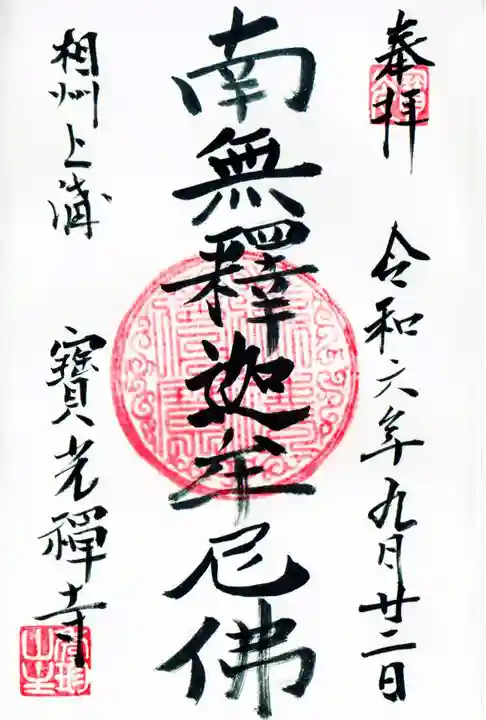 奉拝 令和六年九月廿二日
南無釋迦牟尼佛
相州上溝
寶光禪寺